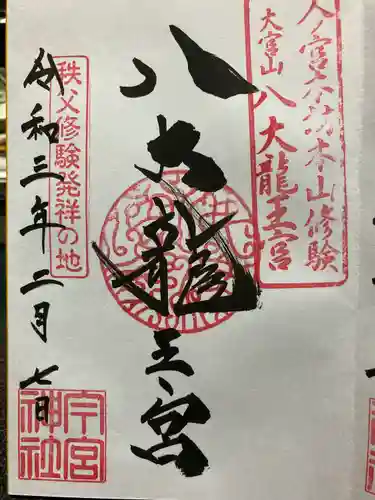 大宮山
八大龍王宮
八大龍王宮
秩父修験発祥の地
令和三年二月七日
今宮神社